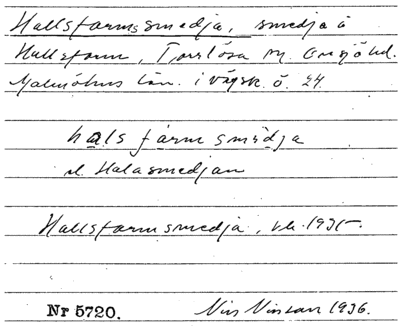 Hallsfarmssmedja, smedja å
Hallsfarm, Torrlösa sn. Onsjö hd.
Malmöhus län. i vägsk. ö. 24.
hals farm smidja
el. Halasmedjan
Hallsfarmsmedja, 1935.
Nr 5720. Nils 1936.